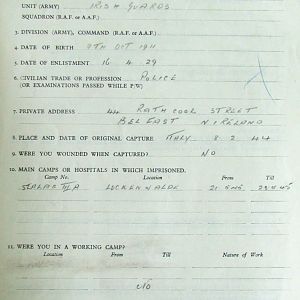 UNIT (ARMY) IRISH GUARDS
SQUADRON (R.A.F. or A.A.F.)
3. DIVISION (ARMY), COMMAND (R.A.F. or A.A.F.)
4. DATE OF BIRTH 9TH OCT 1911
5. DATE OF ENLISTMENT 16 4 29
6. CIVILIAN TRADE OR PROFESSION POLICE
(OR EXAMINATIONS PASSED WHILE P/W)
7. PRIVATE ADDRESS 44 RATHCOOL STREET
BELFAST N IRELAND
8. PLACE AND DATE OF ORIGINAL CAPTURE ITALY 8 2 44
9. WERE YOU WOUNDED WHEN CAPTURED? NO
10. MAIN CAMPS OR HOSPITALS IN WHICH IMPRISONED.
Camp No. Location From Till
STALAG IIIA LUCKENWALDE
11. WERE YOU IN A WORKING CAMP?
Location From Till Nature of Work
NO